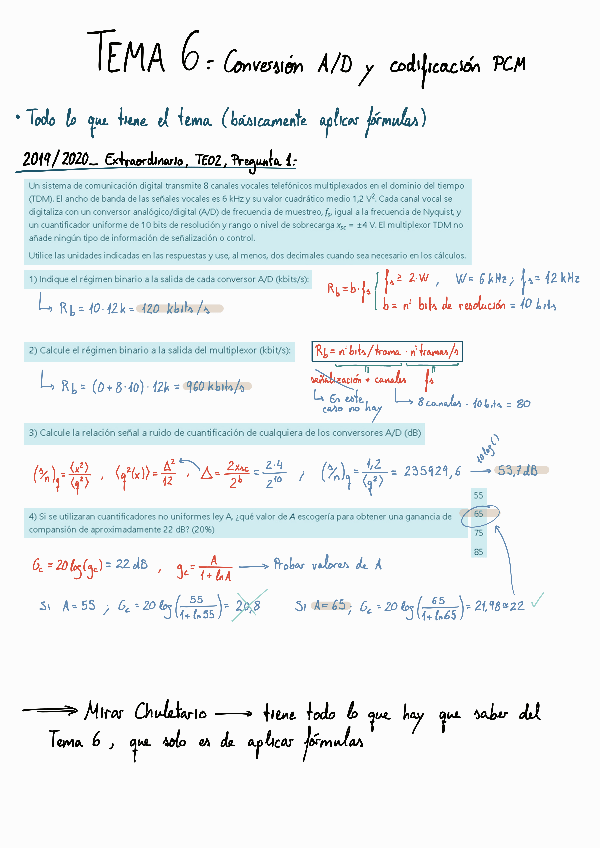 TEMA 6 = Conversión A/D y codificación PCM
• Todo lo que tiene el tema (básicamente aplicar fórmulas)
2019/2020_ Extraordinario, TE02, Pregunta 1:-
Un sistema de comunicación digital transmite 8 canales vocales telefónicos multiplexados en el dominio del tiempo
(TDM). El ancho de banda de las señales vocales es 6 kHz y su valor cuadrático medio 1,2 V². Cada canal vocal se
digitaliza con un conversor analógico/digital (A/D) de frecuencia de muestreo, fs, igual a la frecuencia de Nyquist, y
un cuantificador uniforme de 10 bits de resolución y rango o nivel de sobrecarga xsc = ±4 V. El multiplexor TDM no
añade ningún tipo de información de señalización o control.
Utilice las unidades indicadas en las respuestas y use, al menos, dos decimales cuando sea necesario en los cálculos.
1) Indique el régimen binario a la salida de cada conversor A/D (kbits/s):
Rb = b·fs { fs ≥ 2·W , W = 6 kHz ; fs = 12 kHz
b = nº bits de resolución = 10 bits
↳ Rb = 10·12k = 120 kbits/s
2) Calcule el régimen binario a la salida del multiplexor (kbit/s):
Rb = nº bits/trama · nº tramas/s
señalización + canales fs
↳ Rb = (0+8·10)·12k = 960 kbits/s
↳ En este caso no hay
↳ 8 canales · 10 bits = 80
3) Calcule la relación señal a ruido de cuantificación de cualquiera de los conversores A/D (dB)
(s/n)q = ⟨x²⟩/⟨q²⟩ , ⟨q²(x)⟩ = Δ²/12 , Δ = 2xsc/2^b = 2·4/2^10 ; (s/n)q = 1,2/⟨q²⟩ = 235929,6 → 10log() 53,7 dB
4) Si se utilizaran cuantificadores no uniformes ley A, ¿qué valor de A escogería para obtener una ganancia de
compansión de aproximadamente 22 dB? (20%)
55
65
75
85
Gc = 20 log(gc) = 22 dB , gc = A/(1+lnA) → Probar valores de A
Si A = 55 ; Gc = 20 log(55/(1+ln55)) = 20,8
Si A = 65 ; Gc = 20 log(65/(1+ln65)) = 21,98 ≈ 22 ✓
⟹ Mirar Chuletario → tiene todo lo que hay que saber del
Tema 6 , que solo es de aplicar fórmulas